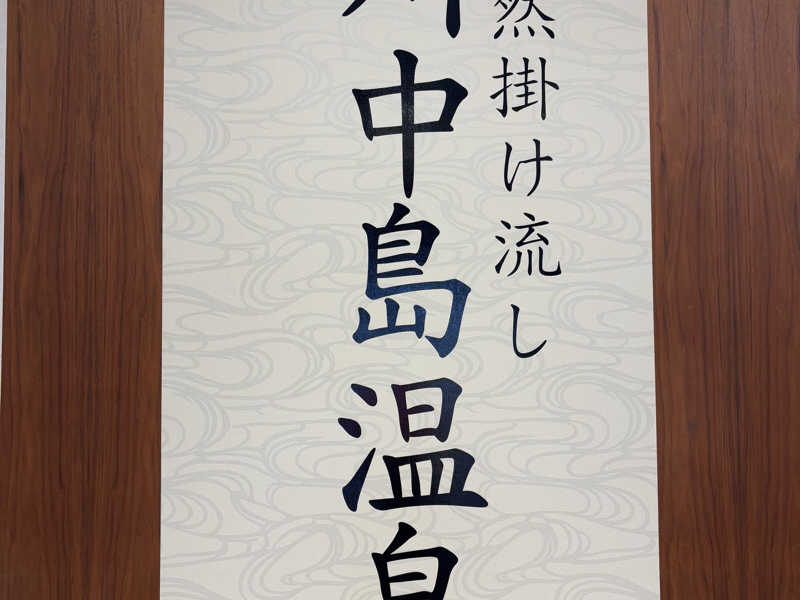 然掛け流し
川中島温泉